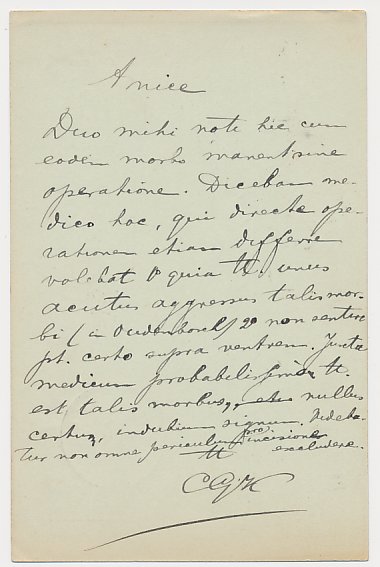 Amice
Duo mihi noti hic cum
eodem morbo manent sine
operatione. Dicebam me-
dico hoc, qui directe ope-
rationem etiam differre
volebat 1º quia tt. unus
acutus aggressus talis mor-
bi (in Oudenbosch) 2º non sentire
pt. certo supra ventrem. Juxta
medicum probabilissima tt.
est talis morbus, etsi nullus
certus, indubium signum. Videba-
tur non omne periculum pro incisione
tt excludere.